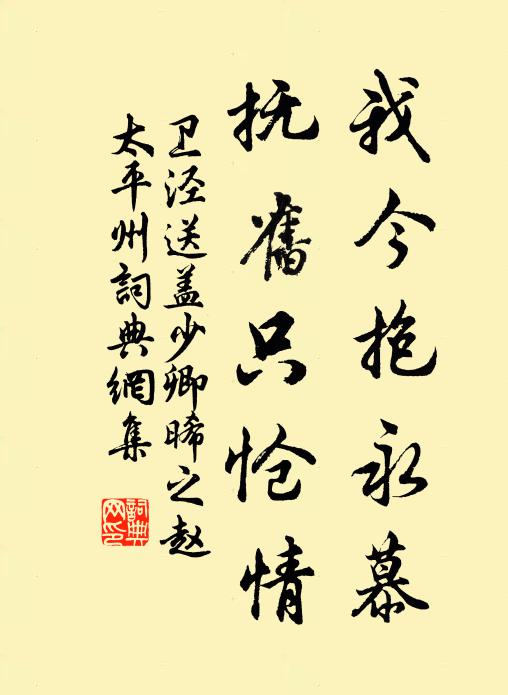 我今抱永慕
抚舊只怆情
卫泾送盖少卿晞之赵
太平州詞典網集
詞典
网印